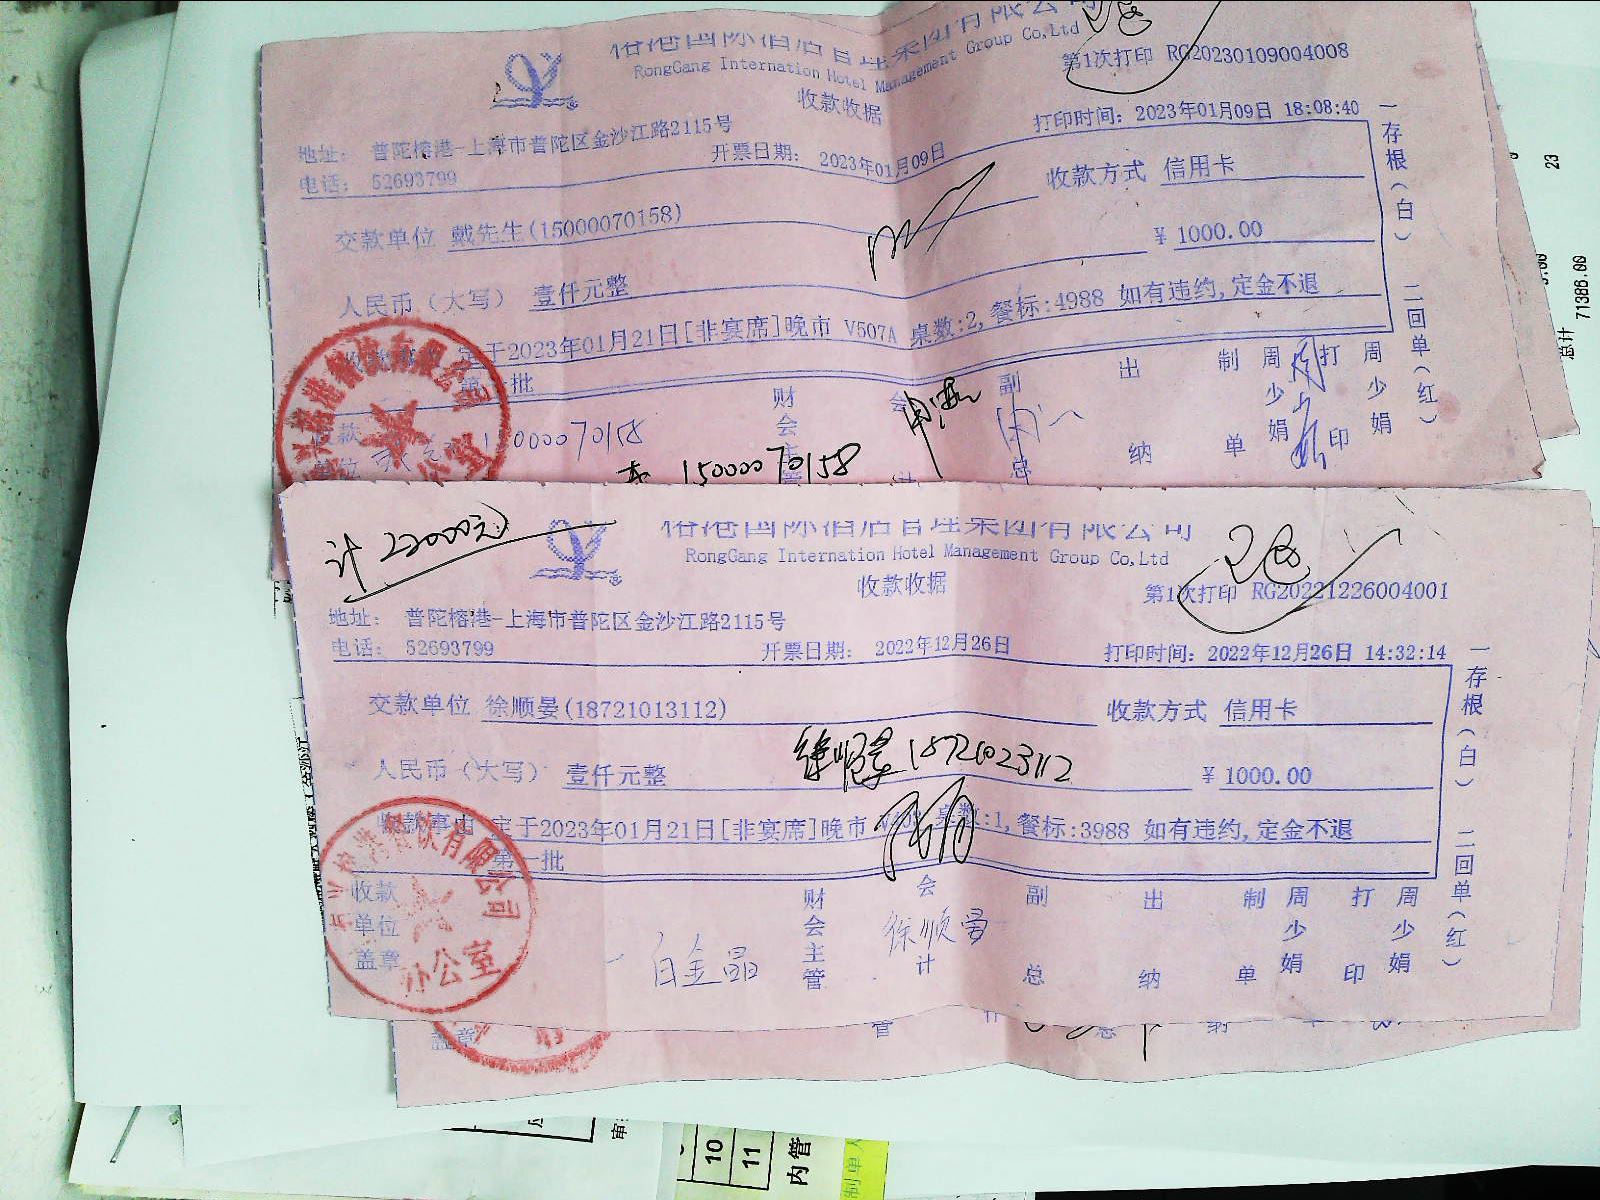 RongGang Internation Hotel Management Group Co,Ltd
第1次打印 RG20230109004008
收款收据
打印时间: 2023年01月09日 18:08:40
地址: 普陀榕港-上海市普陀区金沙江路2115号
电话: 52693799
开票日期: 2023年01月09日
收款方式 信用卡
交款单位 戴先生(15000070158)
¥ 1000.00
人民币(大写) 壹仟元整
定于2023年01月21日[非宴席]晚市 V507A 桌数:2, 餐标:4988 如有违约,定金不退
第一批
一存根(白) 二回单(红)
收款
单位
15000070158
15000070158
财会主管
会计
副总
出纳
制单
周少娟
打印
周少娟
计22000元
RongGang Internation Hotel Management Group Co,Ltd
收款收据
第1次打印 RG20221226004001
地址: 普陀榕港-上海市普陀区金沙江路2115号
电话: 52693799
开票日期: 2022年12月26日
打印时间: 2022年12月26日 14:32:14
交款单位 徐顺晏(18721013112)
收款方式 信用卡
徐顺晏 18721023112
人民币(大写) 壹仟元整
¥ 1000.00
收款事由 定于2023年01月21日[非宴席]晚市 桌数:1, 餐标:3988 如有违约,定金不退
第一批
一存根(白) 二回单(红)
收款
单位
盖章
办公室
白金晶
财会主管
会计
徐顺晏
副总
出纳
制单
周少娟
打印
周少娟
盖章
23
总计 71386.00
10
11
内管
制单人